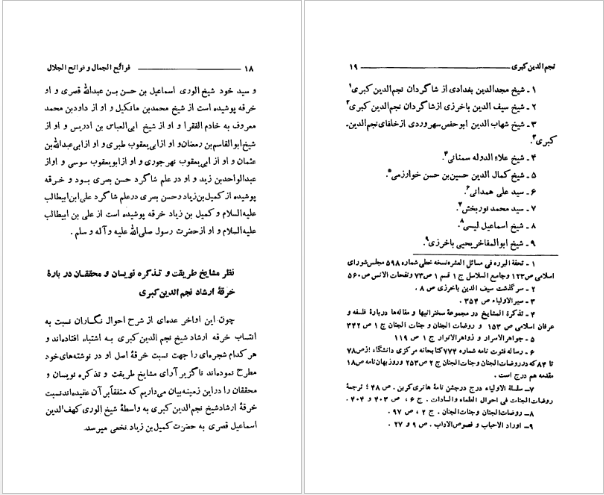 ۱۸ فوائح الجمال و فوائح الجلال
و سید خود شیخ الوری اسماعیل بن حسن بن عبدالله قصری و او
خرقه پوشیده است از شیخ محمدبن مانکیل و او از داودبن محمد
معروف به خادم الفقرا و او از شیخ ابی‌العباس بن ادریس و او از
شیخ ابوالقاسم بن رمضان و او از ابی‌یعقوب طبری و او از ابی عبدالله بن
عثمان و او از ابی‌یعقوب نهرجوری و او ازابویعقوب سوسی و او از
عبدالواحدبن زید و او در علم شاگرد حسن بصری بود و خرقه
پوشیده از کمیل بن زیاد و حسن بصری در علم شاگرد علی ابن ابیطالب
علیه‌السلام و کمیل بن زیاد خرقه پوشیده است از علی بن ابیطالب
علیه‌السلام و او از حضرت رسول صلی‌الله علیه و آله و سلم .
نظر مشایخ طریقت و تذکره نویسان و محققان در بارهٔ
خرقهٔ ارشاد نجم‌الدین کبری
چون این اواخر عده‌ای از شرح احوال نگاران نسبت به
انتساب خرقه ارشاد شیخ نجم‌الدین کبری به اشتباه افتاده‌اند و
هر کدام شجره‌ای را جهت نسبت خرقهٔ اصل او در نوشته‌های خود
مطرح نموده‌اند ناگزیر آرای مشایخ طریقت و تذکره نویسان و
محققان را در این زمینه بیان می‌داریم که متفقاً بر آن عقیده‌اند نسبت
خرقهٔ ارشاد شیخ نجم‌الدین کبری به واسطهٔ شیخ الوری کهف‌الدین
اسماعیل قصری به حضرت کمیل بن زیاد نخعی میرسد.
نجم‌الدین کبری ۱۹
۱ ـ شیخ مجدالدین بغدادی از شاگردان نجم‌الدین کبری۱
۲ ـ شیخ سیف الدین باخرزی از شاگردان نجم‌الدین کبری۲
۳ ـ شیخ شهاب الدین ابوحفص سهروردی از خلفای نجم‌الدین
کبری۳.
۴ ـ شیخ علاء الدوله سمنانی۴.
۵ ـ شیخ کمال الدین حسین بن حسن خوارزمی۵.
۶ ـ سید علی همدانی۶.
۷ ـ سید محمد نوربخش۷.
۸ ـ شیخ اسماعیل لیسی۸.
۹ ـ شیخ ابوالمفاخر یحیی باخرزی۹.
۱ ـ تحفة البرره فی مسائل العشره نسخه خطی شماره ۵۹۸ مجلس شورای
اسلامی ص۱۲۳ و جامع السلاسل ج ۱ قسم ۱ ص۷۳ و نفحات الانس ص۵۶۰
۲ ـ سرگذشت سیف الدین باخرزی ص ۸ .
۳ ـ سیر الاولیاء ص ۳۵۴
۴ ـ تذکرة المشایخ در مجموعهٔ سخنرانیها و مقاله‌ها دربارهٔ فلسفه و
عرفان اسلامی ص ۱۵۳ و روضات الجنان و جنات الجنان ج ۱ ص ۳۴۲
۵ ـ جواهر الاسرار و زواهر الانوار ج ۱ ص ۱۱۹
۶ ـ رساله فتوت نامه شماره ۷۷۴ کتابخانه مرکزی دانشگاه / از ص۷۸
تا ۸۳ که در روضات الجنان و جنات الجنان ج ۲ ص۲۵۳ و روزبهان نامه ص۱۸
مقدمه هم درج است .
۷ ـ سلسلة الاولیاء درج در جشن نامهٔ هانری کربن . ص ۴۸ ؛ ترجمهٔ
روضات الجنات فی احوال العلماء و السادات . ج ۶ ، ص ۴۰۳ و ۴۰۴ .
۸ ـ روضات الجنان و جنات الجنان . ج ۲ ، ص ۹۷ .
۹ ـ اوراد الاحباب و فصوص الآداب . ص ۹ و ۲۷ .